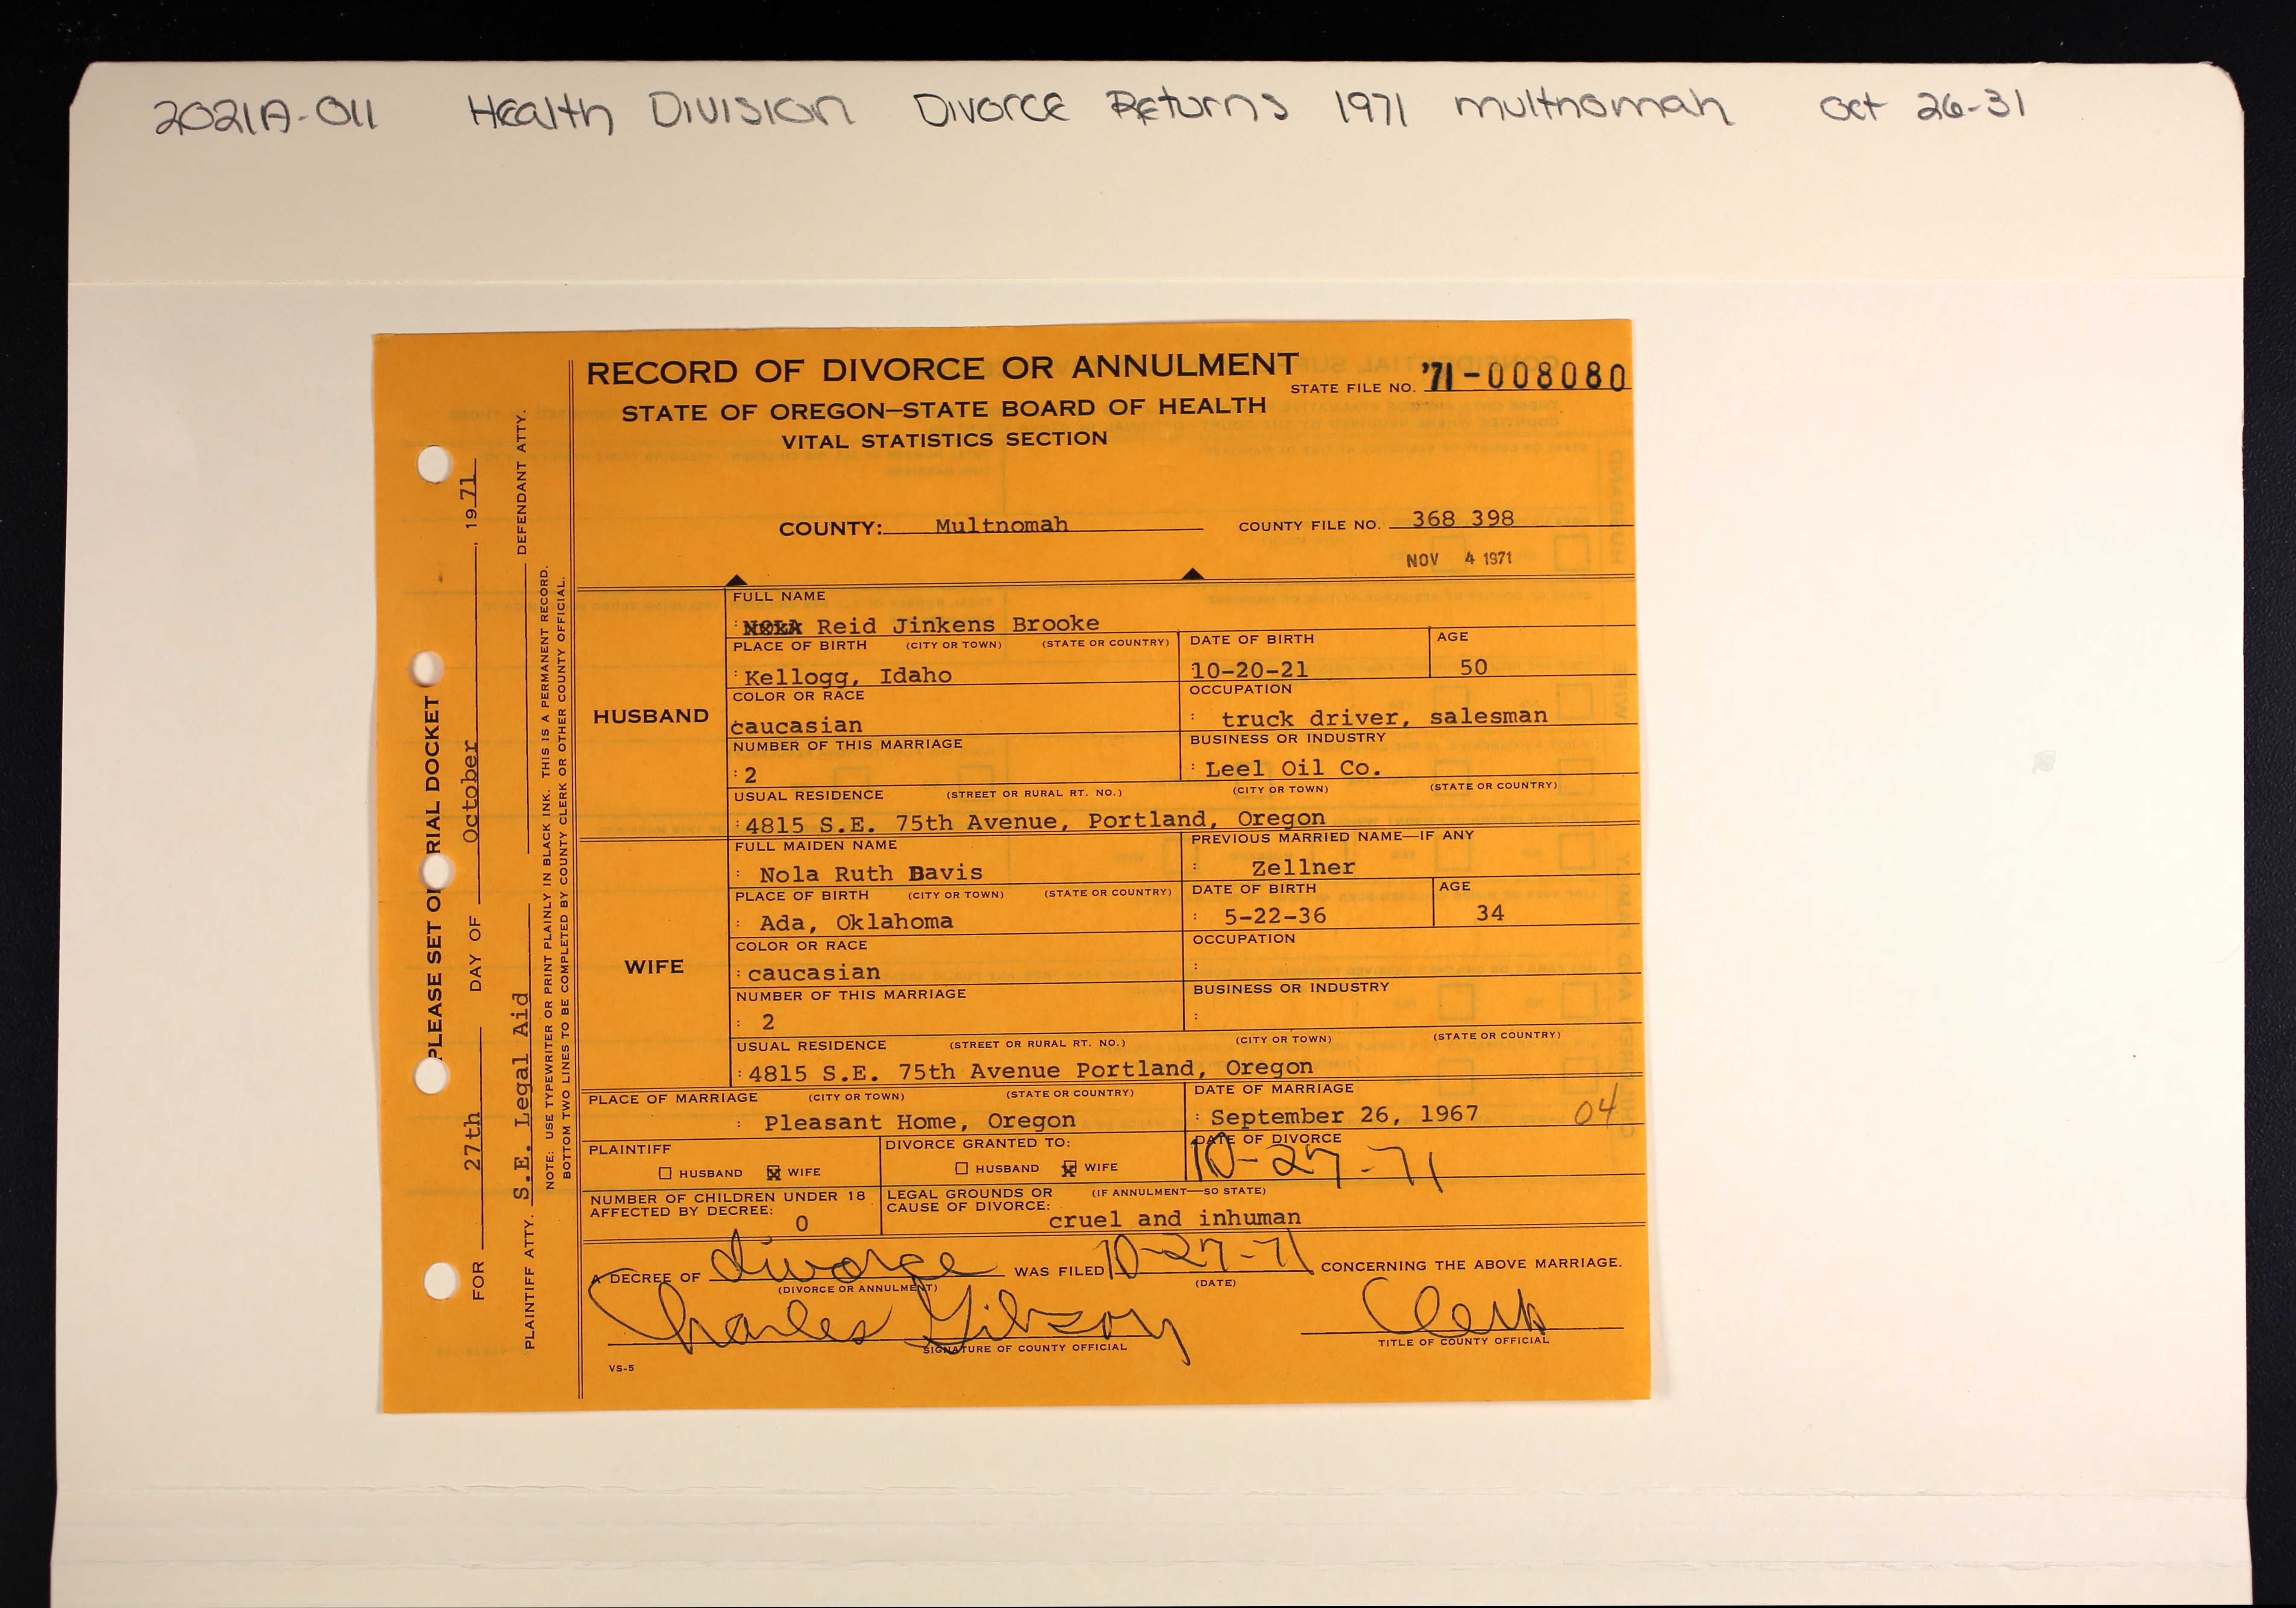 2021A-011 Health Division Divorce Returns 1971 Multnomah Oct 26-31
RECORD OF DIVORCE OR ANNULMENT
STATE FILE NO. '71-008080
STATE OF OREGON—STATE BOARD OF HEALTH
VITAL STATISTICS SECTION
COUNTY: Multnomah COUNTY FILE NO. 368 398
NOV 4 1971
HUSBAND
FULL NAME
: Reid Jinkens Brooke
PLACE OF BIRTH (CITY OR TOWN) (STATE OR COUNTRY) DATE OF BIRTH AGE
: Kellogg, Idaho 10-20-21 50
COLOR OR RACE OCCUPATION
caucasian : truck driver, salesman
NUMBER OF THIS MARRIAGE BUSINESS OR INDUSTRY
: 2 : Leel Oil Co.
USUAL RESIDENCE (STREET OR RURAL RT. NO.) (CITY OR TOWN) (STATE OR COUNTRY)
: 4815 S.E. 75th Avenue, Portland, Oregon
WIFE
FULL MAIDEN NAME PREVIOUS MARRIED NAME—IF ANY
: Nola Ruth Davis : Zellner
PLACE OF BIRTH (CITY OR TOWN) (STATE OR COUNTRY) DATE OF BIRTH AGE
: Ada, Oklahoma : 5-22-36 34
COLOR OR RACE OCCUPATION
: caucasian :
NUMBER OF THIS MARRIAGE BUSINESS OR INDUSTRY
: 2 :
USUAL RESIDENCE (STREET OR RURAL RT. NO.) (CITY OR TOWN) (STATE OR COUNTRY)
: 4815 S.E. 75th Avenue Portland, Oregon
PLACE OF MARRIAGE (CITY OR TOWN) (STATE OR COUNTRY) DATE OF MARRIAGE
: Pleasant Home, Oregon : September 26, 1967 04
PLAINTIFF DIVORCE GRANTED TO: DATE OF DIVORCE
☐ HUSBAND ☒ WIFE ☐ HUSBAND ☒ WIFE 10-27-71
NUMBER OF CHILDREN UNDER 18 LEGAL GROUNDS OR (IF ANNULMENT—SO STATE)
AFFECTED BY DECREE: 0 CAUSE OF DIVORCE: cruel and inhuman
A DECREE OF divorce WAS FILED 10-27-71 CONCERNING THE ABOVE MARRIAGE.
(DIVORCE OR ANNULMENT) (DATE)
Charles Gibson Clerk
SIGNATURE OF COUNTY OFFICIAL TITLE OF COUNTY OFFICIAL
VS-5
PLEASE SET ON TRIAL DOCKET
FOR 27th DAY OF October, 1971
PLAINTIFF ATTY. S.E. Legal Aid DEFENDANT ATTY.
NOTE: USE TYPEWRITER OR PRINT PLAINLY IN BLACK INK. THIS IS A PERMANENT RECORD.
BOTTOM TWO LINES TO BE COMPLETED BY COUNTY CLERK OR OTHER COUNTY OFFICIAL.